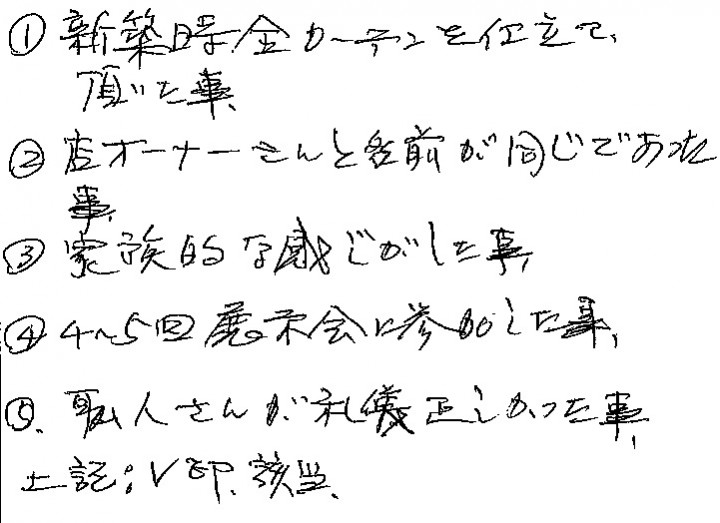 ① 新築時全カーテンを仕立て、
頂いた事、
② 店オーナーさんと名前が同じであった
事、
③ 家族的な感じがした事、
④ 4〜5回展示会に参加した事、
⑤、職人さんが礼儀正しかった事、
上記：V印、該当、